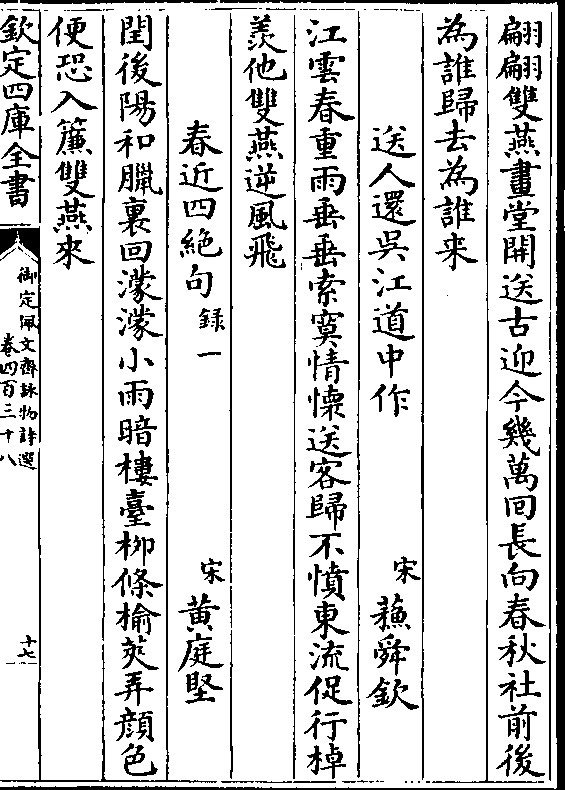 翩翩雙燕畫堂開送古迎今幾萬回長向春秋社前後
為誰歸去為誰来
送人還吳江道中作
宋 蘓舜欽
江雲春重雨垂垂索寞情懐送客歸不憤東流促行棹
羨他雙燕逆風飛
春近四絶句 錄一
宋 黄庭堅
閏後陽和臘裏回濛濛小雨暗樓臺柳條榆莢弄顔色
便恐入簾雙燕來
欽定四庫全書
御定佩文齋詠物詩選
卷四百三十八
十七